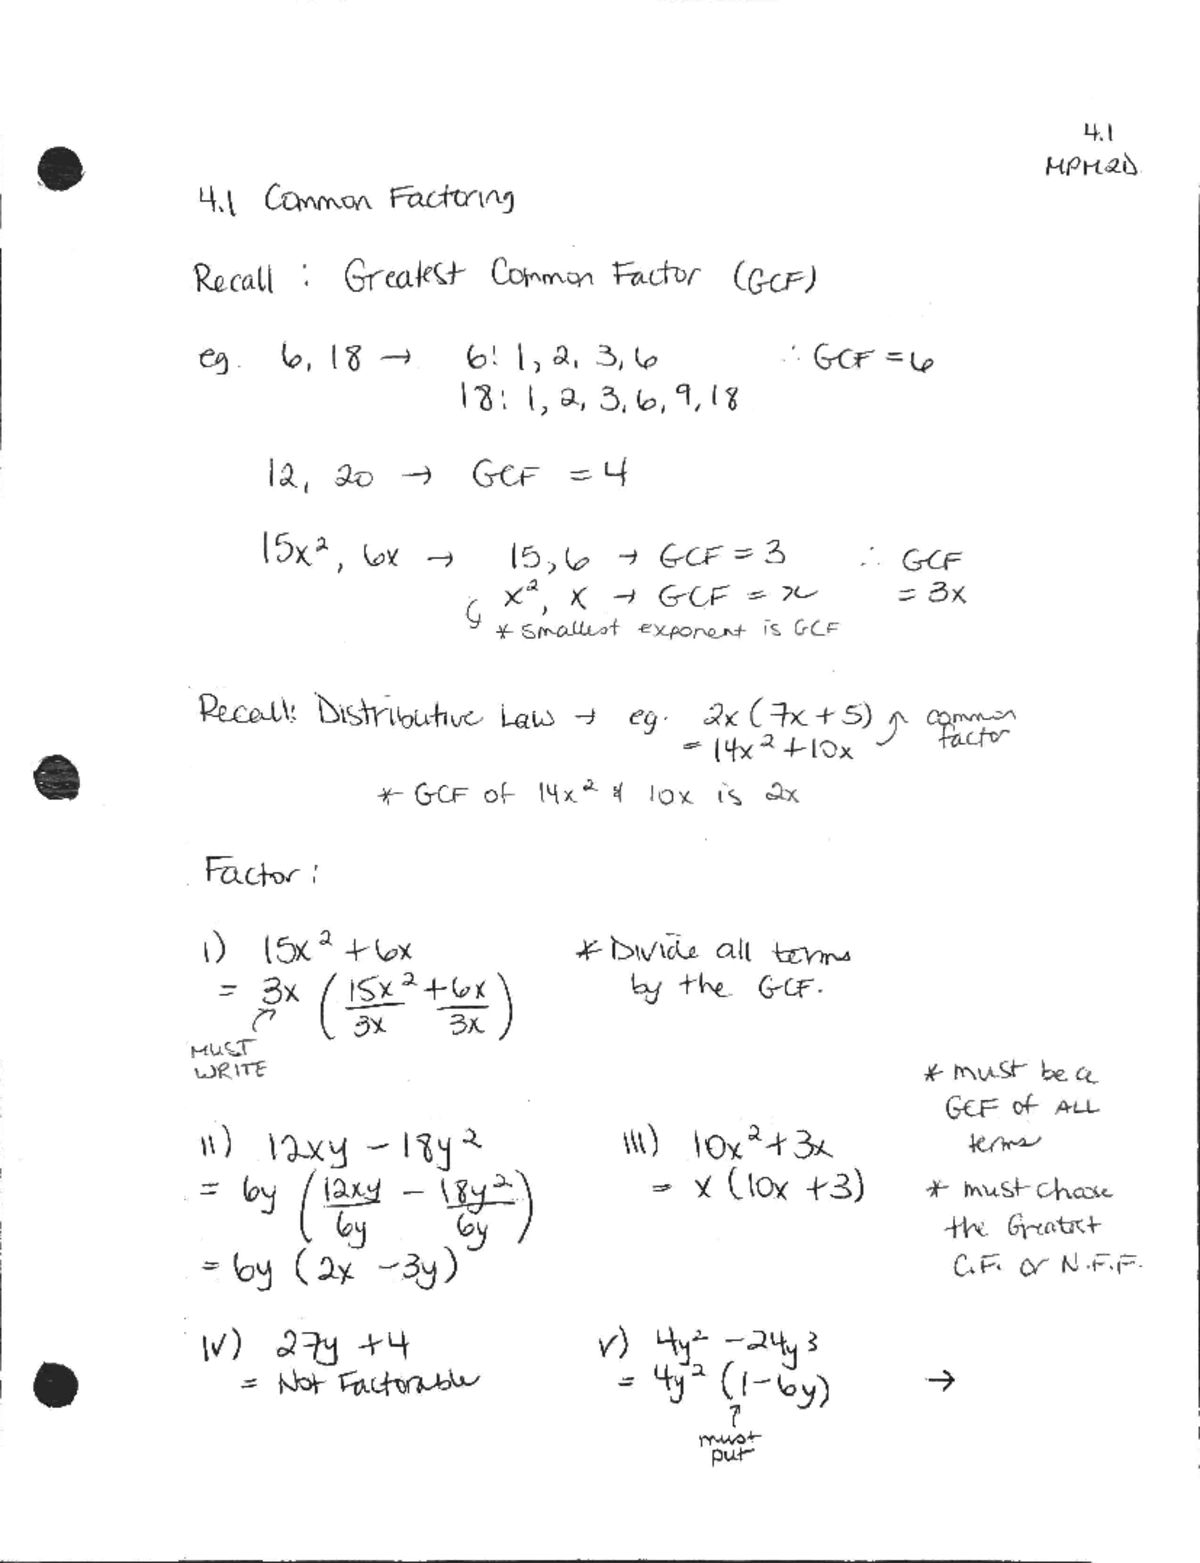 4.1
MPM2D
4.1 Common Factoring
Recall : Greatest Common Factor (GCF)
eg. 6, 18 → 6: 1, 2, 3, 6 ∴ GCF = 6
18: 1, 2, 3, 6, 9, 18
12, 20 → GCF = 4
15x², 6x → 15, 6 → GCF = 3 ∴ GCF
x², x → GCF = x = 3x
* smallest exponent is GCF
Recall: Distributive Law → eg. 2x (7x + 5) common
= 14x² + 10x factor
* GCF of 14x² & 10x is 2x
Factor :
i) 15x² + 6x * Divide all terms
= 3x (15x²/3x + 6x/3x) by the GCF.
MUST
WRITE
ii) 12xy - 18y²
= 6y (12xy/6y - 18y²/6y)
= 6y (2x - 3y)
iii) 10x² + 3x
= x (10x + 3)
* must be a
GCF of ALL
terms
* must chose
the Greatest
C.F. or N.F.F.
iv) 27y + 4
= Not Factorable
v) 4y² - 24y3
= 4y² (1 - 6y) →
↑
must
put